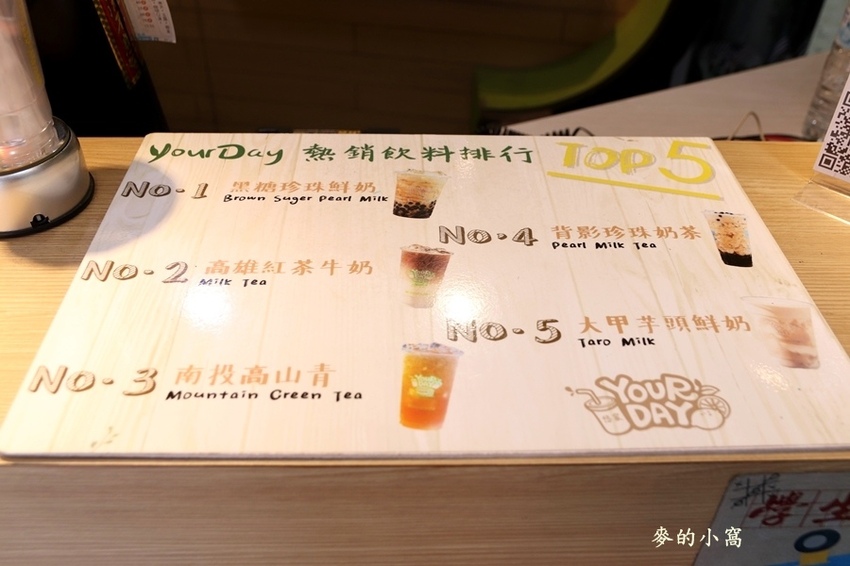 YourDay 熱銷飲料排行 TOP 5
No.1 黑糖珍珠鮮奶
Brown Suger Pearl Milk
No.2 高雄紅茶牛奶
Milk Tea
No.3 南投高山青
Mountain Creen Tea
No.4 背影珍珠奶茶
Pearl Milk Tea
No.5 大甲芋頭鮮奶
Taro Milk
YOUR
DAY
麥的小窩